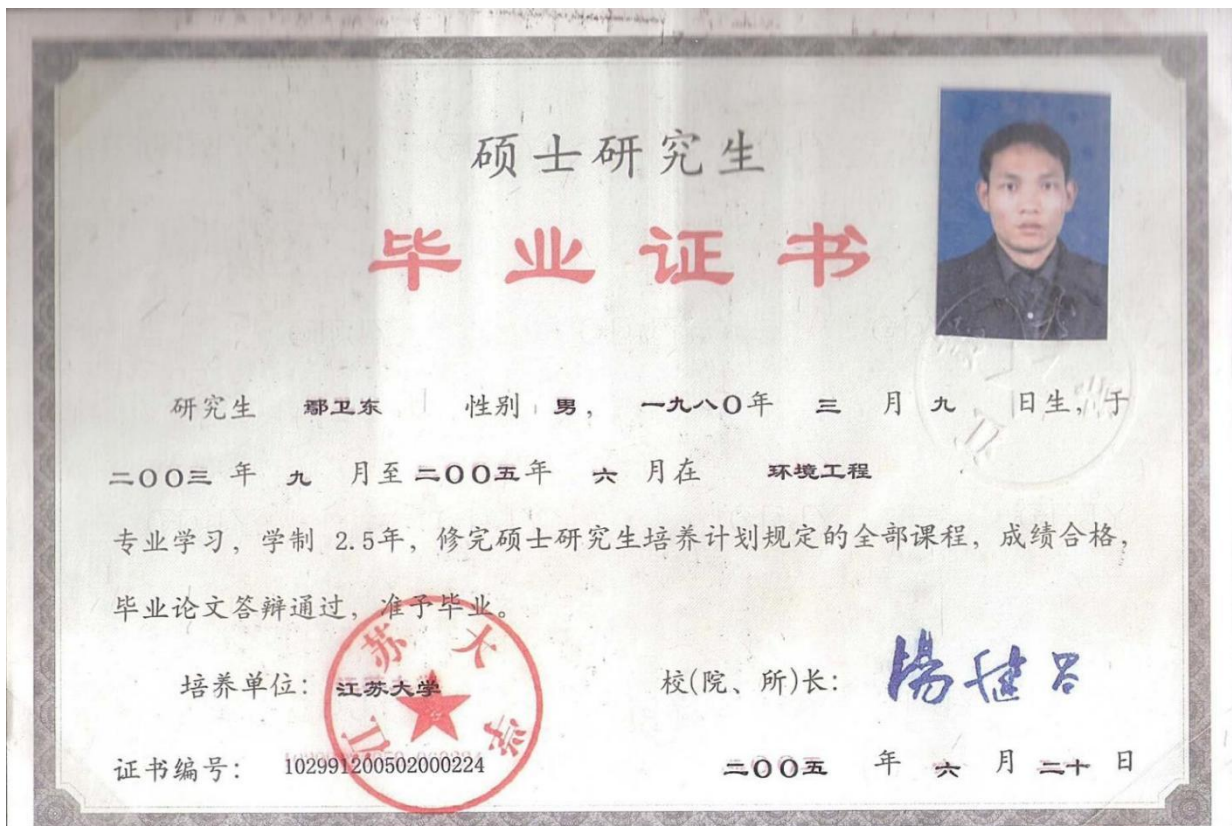 硕士研究生
毕业证书
研究生 鄢卫东 性别 男, 一九八〇年 三 月 九 日生,于
二〇〇三 年 九 月至 二〇〇五年 六 月在 环境工程
专业学习, 学制 2.5年, 修完硕士研究生培养计划规定的全部课程, 成绩合格,
毕业论文答辩通过, 准予毕业。
培养单位: 江苏大学 校(院、所)长: 杨继昌
江苏大学
证书编号: 102991200502000224 二〇〇五 年 六 月 二十 日